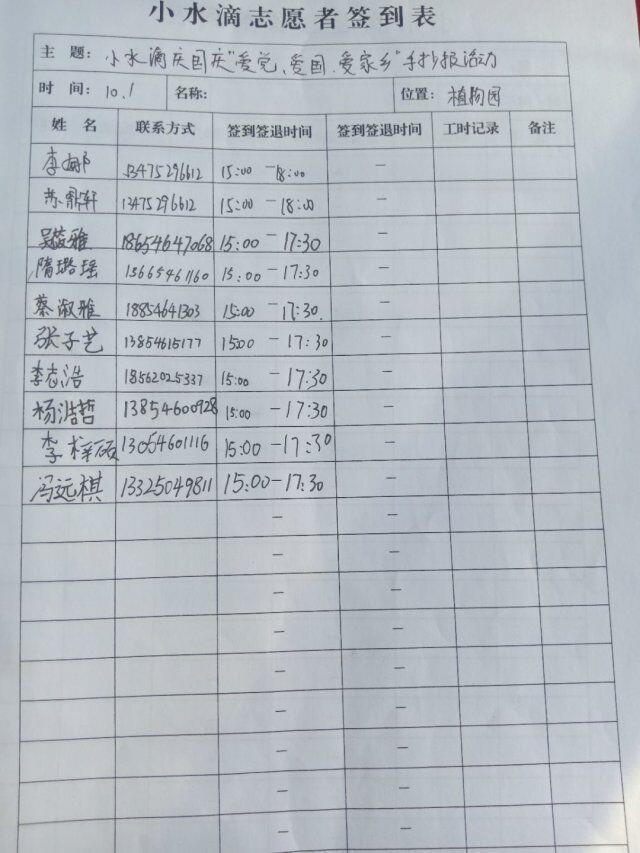 小水滴志愿者签到表
主 题: 小水滴庆国庆"爱党、爱国、爱家乡"手抄报活动
时 间: 10.1 名称: 位置: 植物园
姓 名 联系方式 签到签退时间 签到签退时间 工时记录 备注
李娜 13475296612 15:00 - 18:00 -
苏鼎轩 13475296612 15:00 - 18:00 -
吴筱雅 18654647068 15:00 - 17:30 -
隋璐瑶 13665461160 15:00 - 17:30 -
蔡淑雅 18854641303 15:00 - 17:30. -
张子艺 13854615177 15:00 - 17:30 -
李志浩 18562025337 15:00 - 17:30 -
杨浩哲 13854600928 15:00 - 17:30 -
李梓硕 13054601116 15:00 - 17:30 -
冯远棋 13325049811 15:00 - 17:30 -
- -
- -
- -
- -
- -
- -
- -
- -
- -